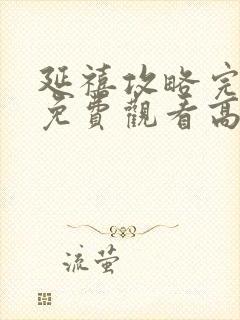 延禧攻略完
免費觀看高
流萤